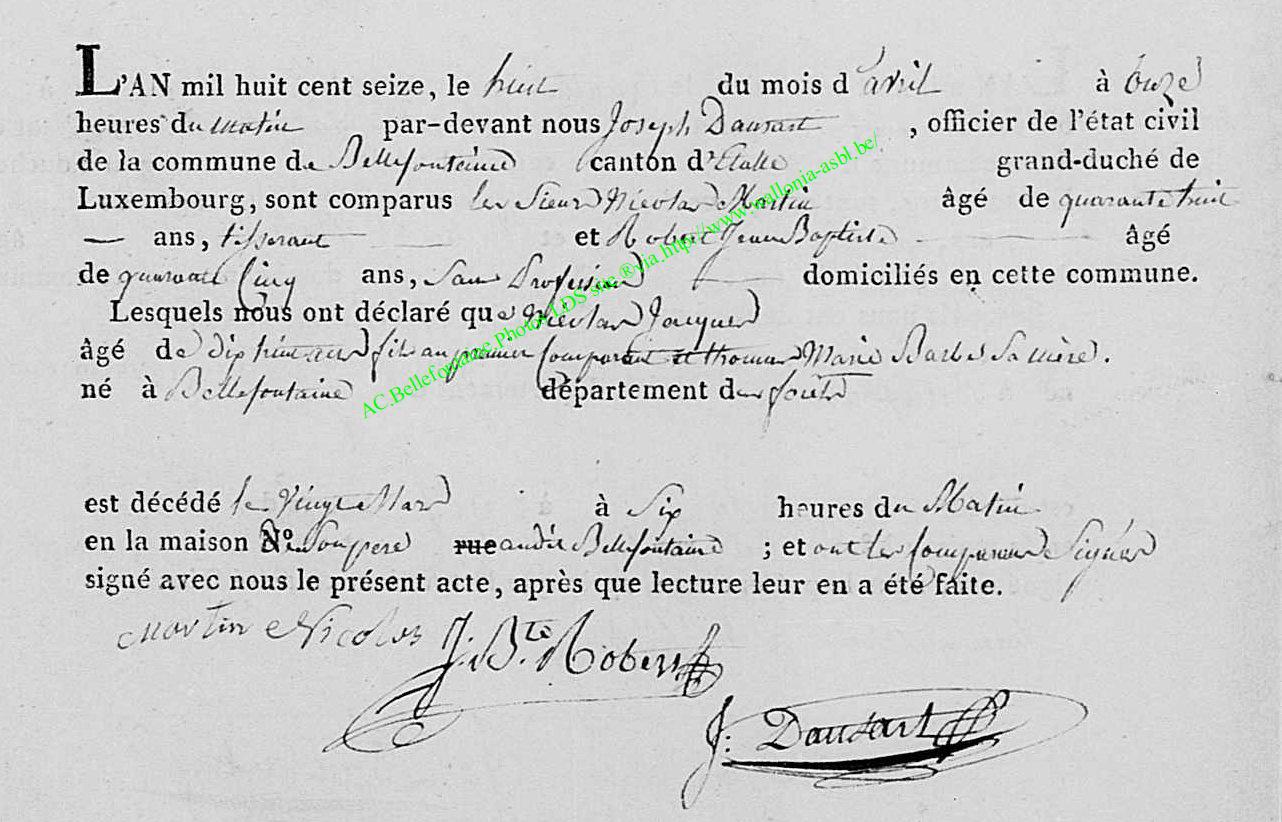 L'AN mil huit cent seize, le huit du mois d'avril à onze
heures du matin par-devant nous Joseph Dausart, officier de l'état civil
de la commune de Bellefontaine canton d'Etalle grand-duché de
Luxembourg, sont comparus les Sieurs Nicolas Martin âgé de quarante huit
— ans, tisserant — et Robert Jean Baptiste — âgé
de quarante Cinq ans, Sans Profession — domiciliés en cette commune.
Lesquels nous ont déclaré que Nicolas Jacques
âgé de dix huit ans fils au premier Comparant et thomas Marie Barbe Sa Mère.
né à Bellefontaine département des forêts
est décédé le Vingt Mars à Six heures du Matin
en la maison N° Son Pere rue audit Bellefontaine ; et ont les Comparans Signés
signé avec nous le présent acte, après que lecture leur en a été faite.
Martin Nicolas J. B.te Robert
J: Dausart
AC.Bellefontaine.Photos LDS slc ®via http://www.wallonia-asbl.be/